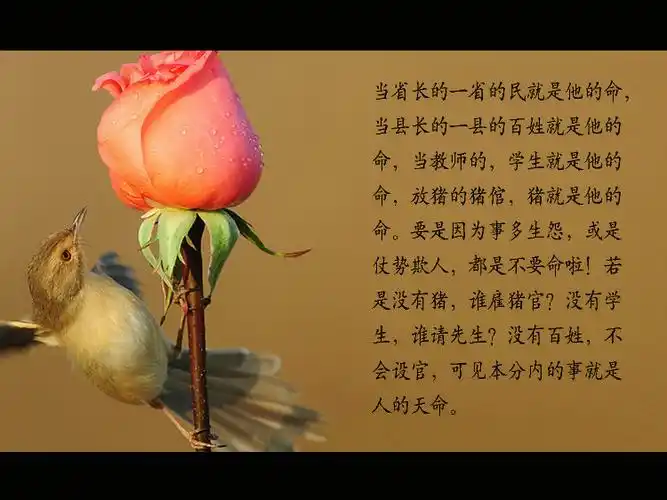 当省长的一省的民就是他的命，
当县长的一县的百姓就是他的
命，当教师的，学生就是他的
命，放猪的猪倌，猪就是他的
命。要是因为事多生怨，或是
仗势欺人，都是不要命啦！若
是没有猪，谁雇猪官？没有学
生，谁请先生？没有百姓，不
会设官，可见本分内的事就是
人的天命。